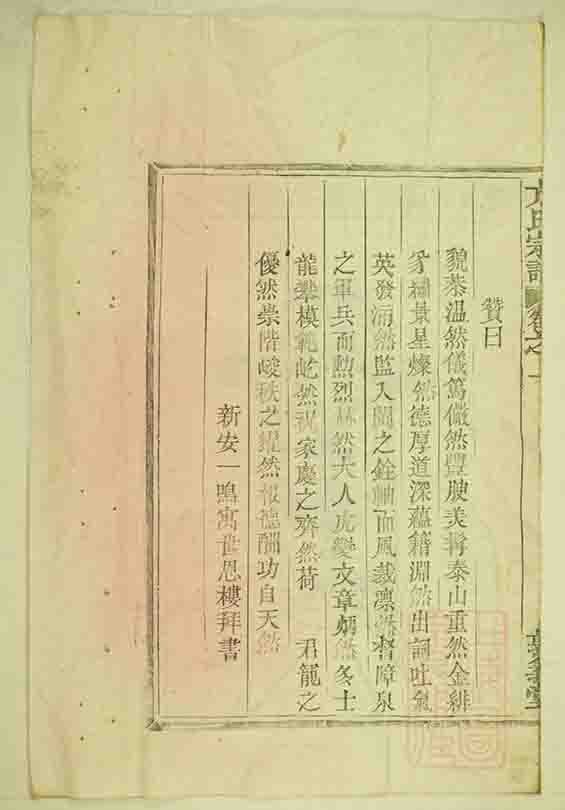 贊曰
貌恭温然儀篤儼然豐腴美髯泰山重然金緋
綉景星燦然德厚道深蘊籍淵然出詞吐氣
英發涌然監入閩之銓軸而風裁凛然督障泉
之軍兵而勲烈赫然大人虎變文章炳然多士
龍攀模範屹然祝家慶之齊然荷 君龍之
優然崇階峻秩之燿然報德酬功自天然
新安一鳴寓世恩樓拜書
氏宗譜
卷之一